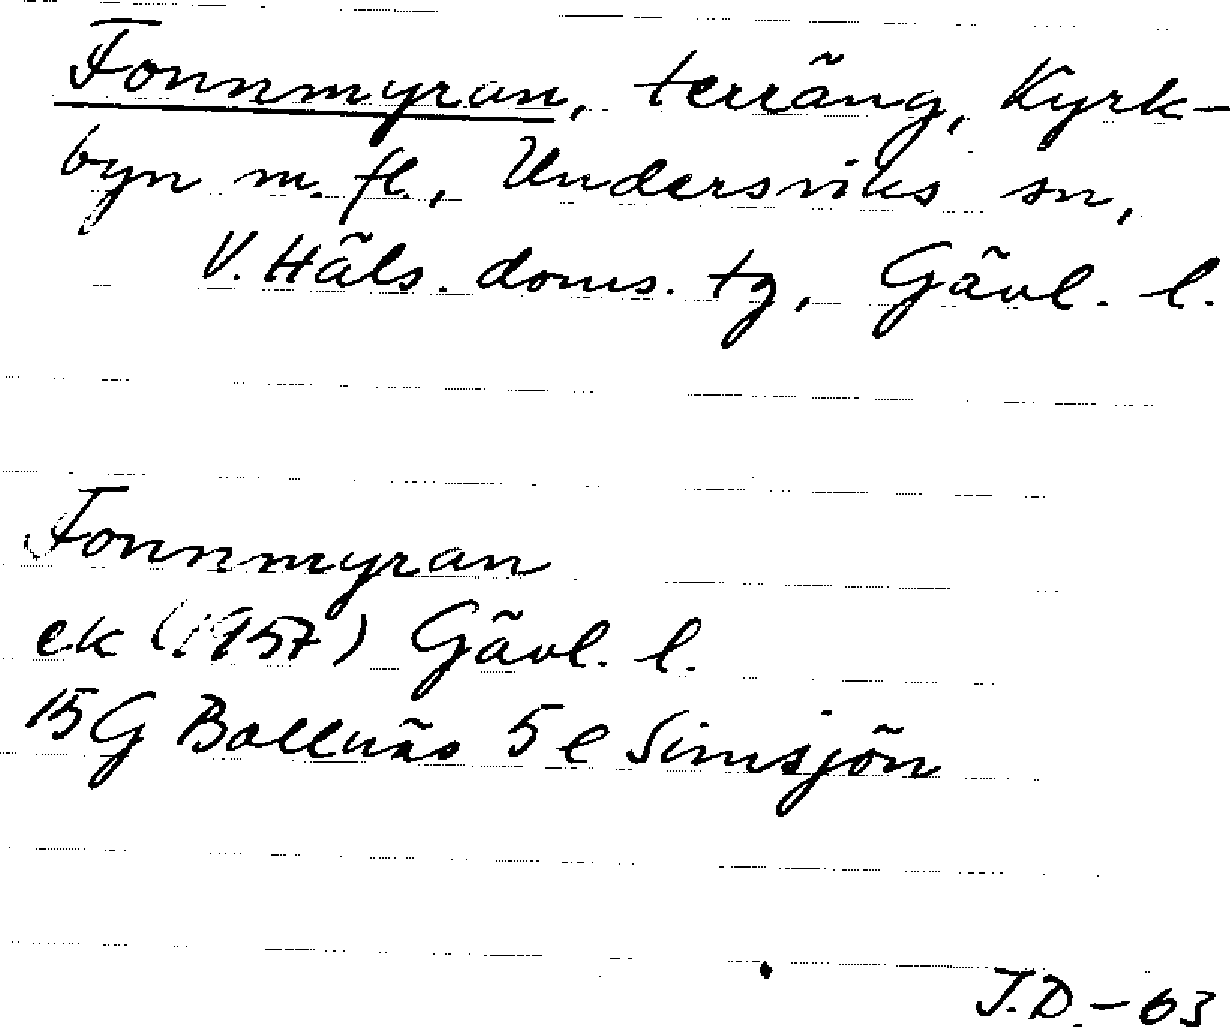 Fonnmyran, terräng, Kyrk-
byn m. fl., Undersviks sn,
V. Häls. doms. tg, Gävl. l.
Fonnmyran
ek (1957) Gävl. l.
15G Bollnäs 5 e Simsjön
J.D. - 63